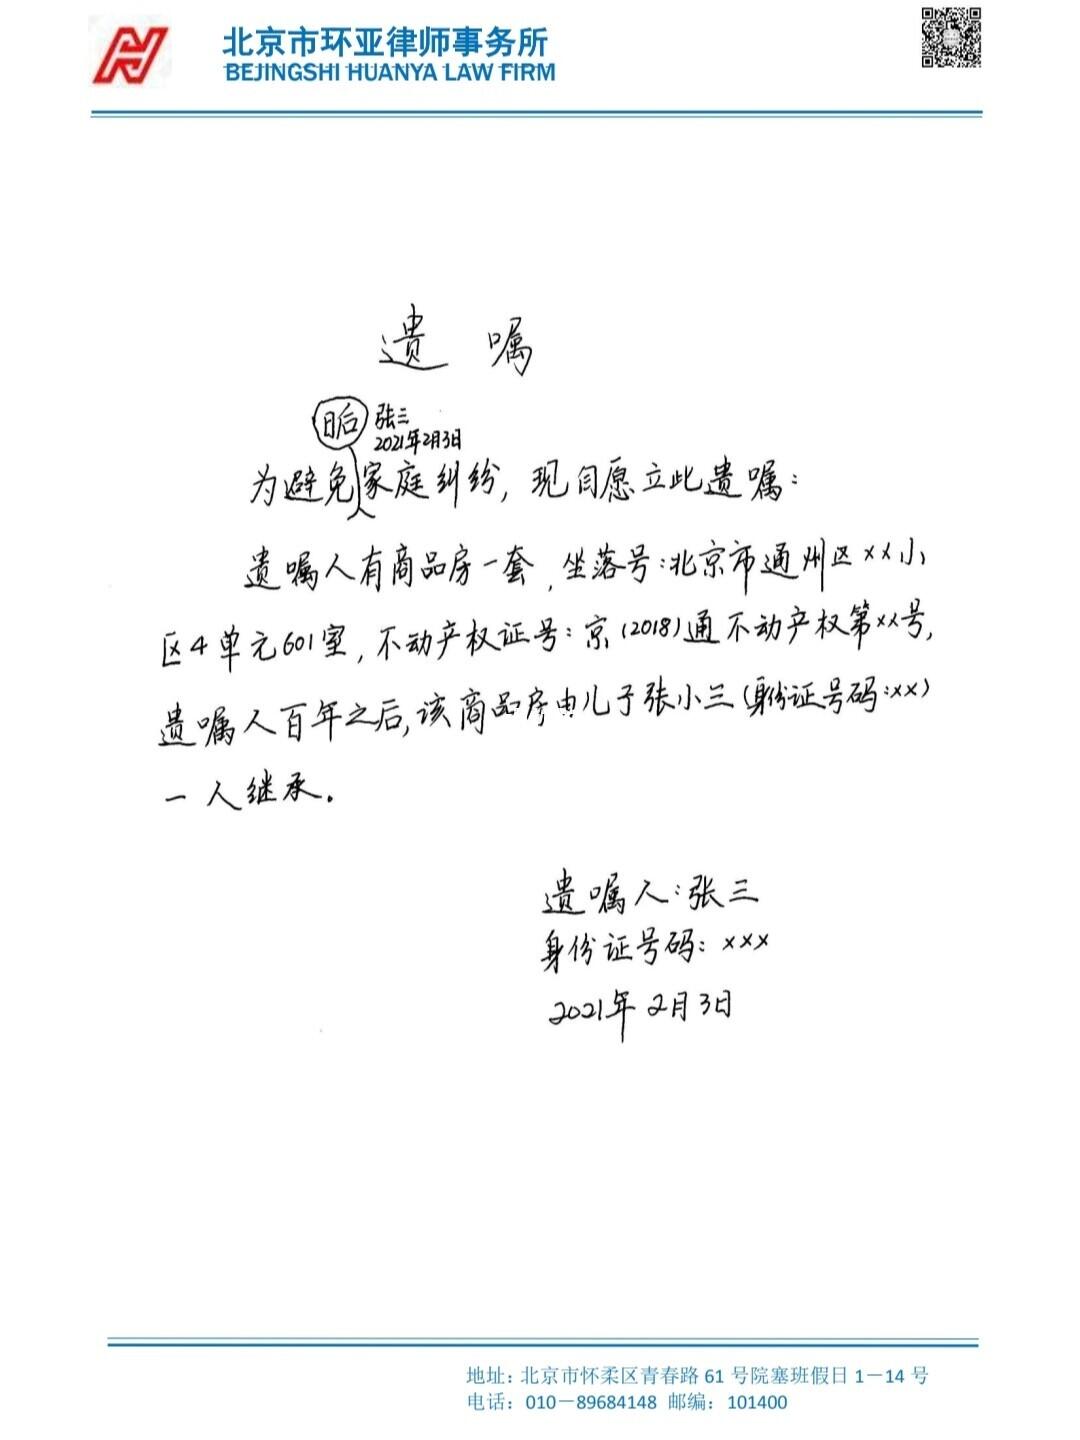 北京市环亚律师事务所
BEJINGSHI HUANYA LAW FIRM
遗 嘱
日后 张三
2021年2月3日
为避免家庭纠纷，现自愿立此遗嘱：
遗嘱人有商品房一套，坐落号：北京市通州区××小
区4单元601室，不动产权证号：京（2018）通不动产权第××号，
遗嘱人百年之后，该商品房由儿子张小三（身份证号码：××）
一人继承。
遗嘱人：张三
身份证号码：×××
2021年2月3日
地址：北京市怀柔区青春路 61 号院塞班假日 1－14 号
电话：010－89684148 邮编：101400